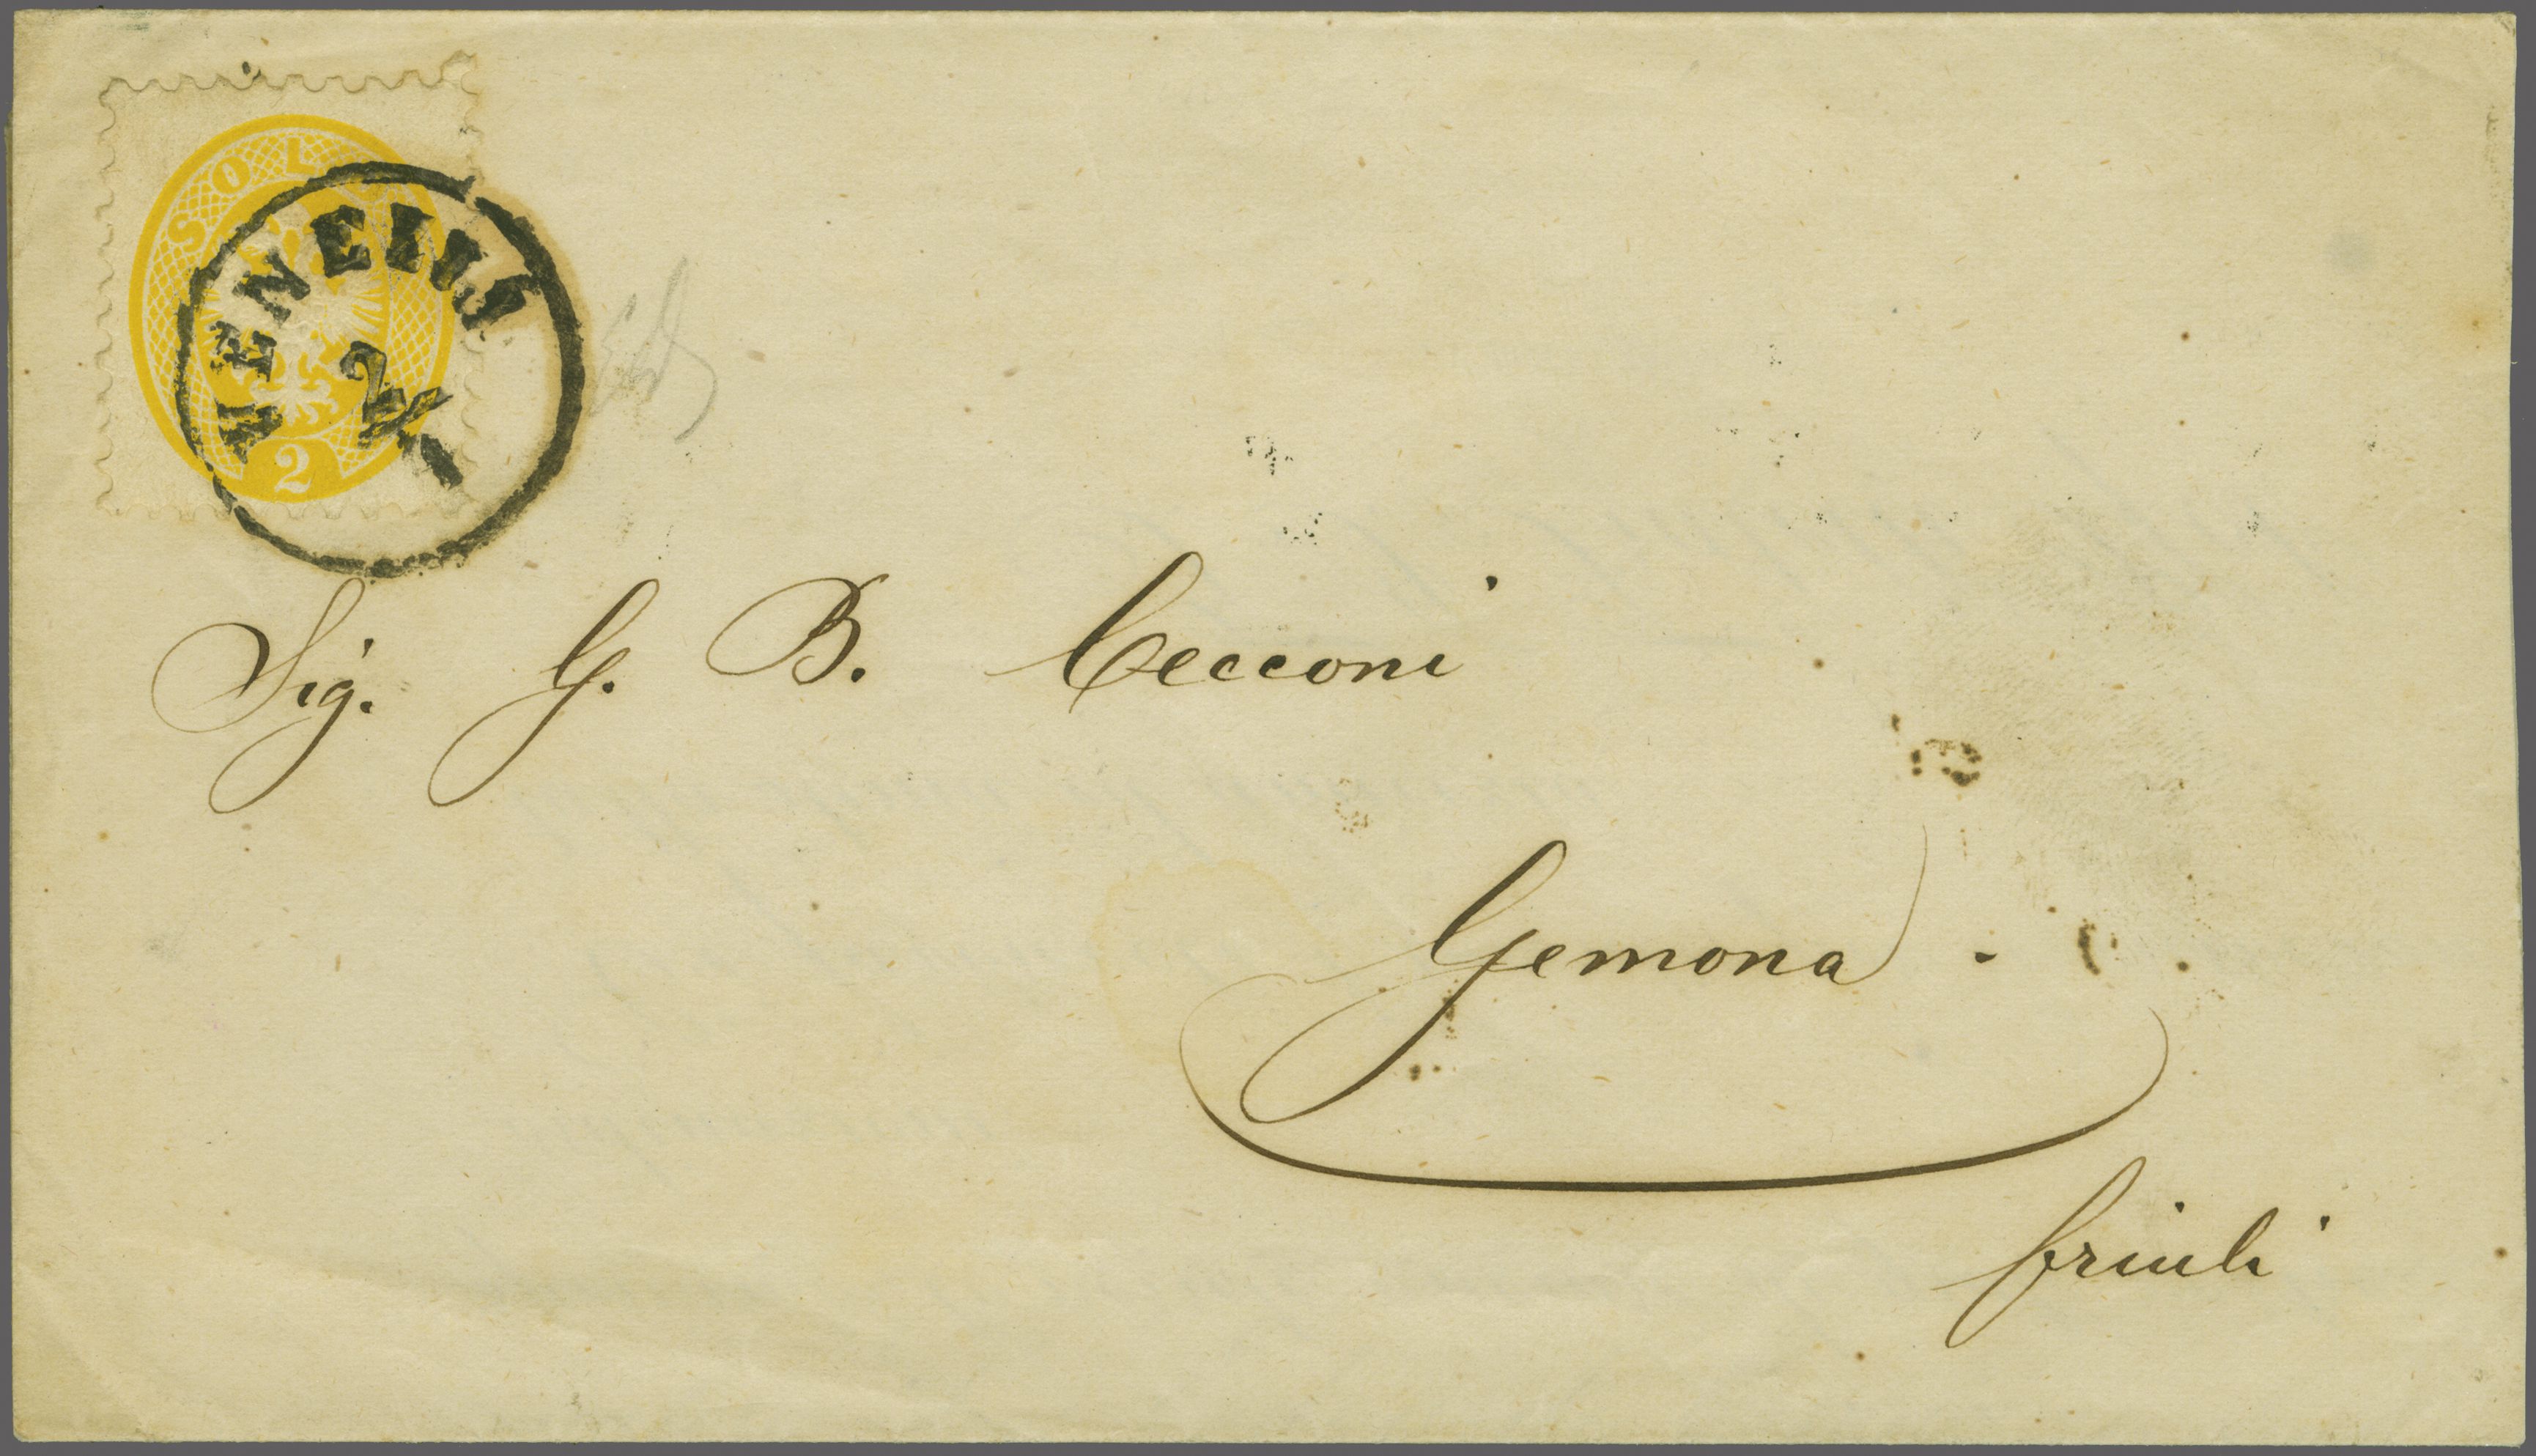 SOLDI
2
VENEZIA
2/1
Sig. G. B. Cecconi
Gemona.
friuli